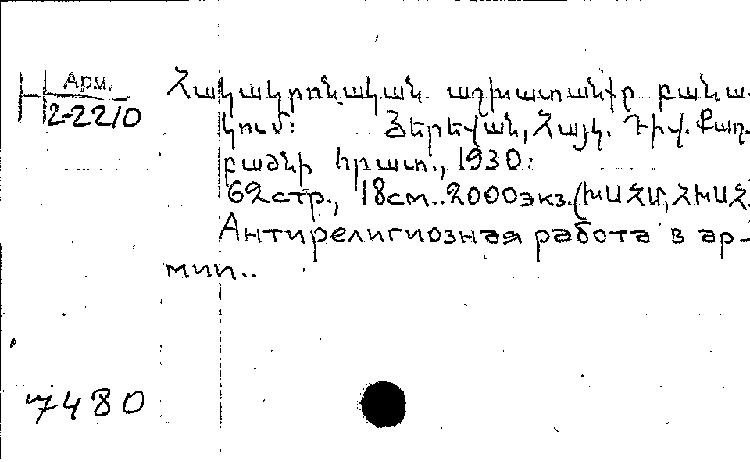 Арм.
2-2210
Հակակրոնական աշխատանքը բանա-
կում: Յերեվան, Հայկ. Դիվ. Քաղ.
բաժնի հրատ., 1930:
62стр., 18см.. 2000экз. (ԽՍՀՄ, ՀԽՍՀ
Антирелигиозная работа в ар-
мии..
7480